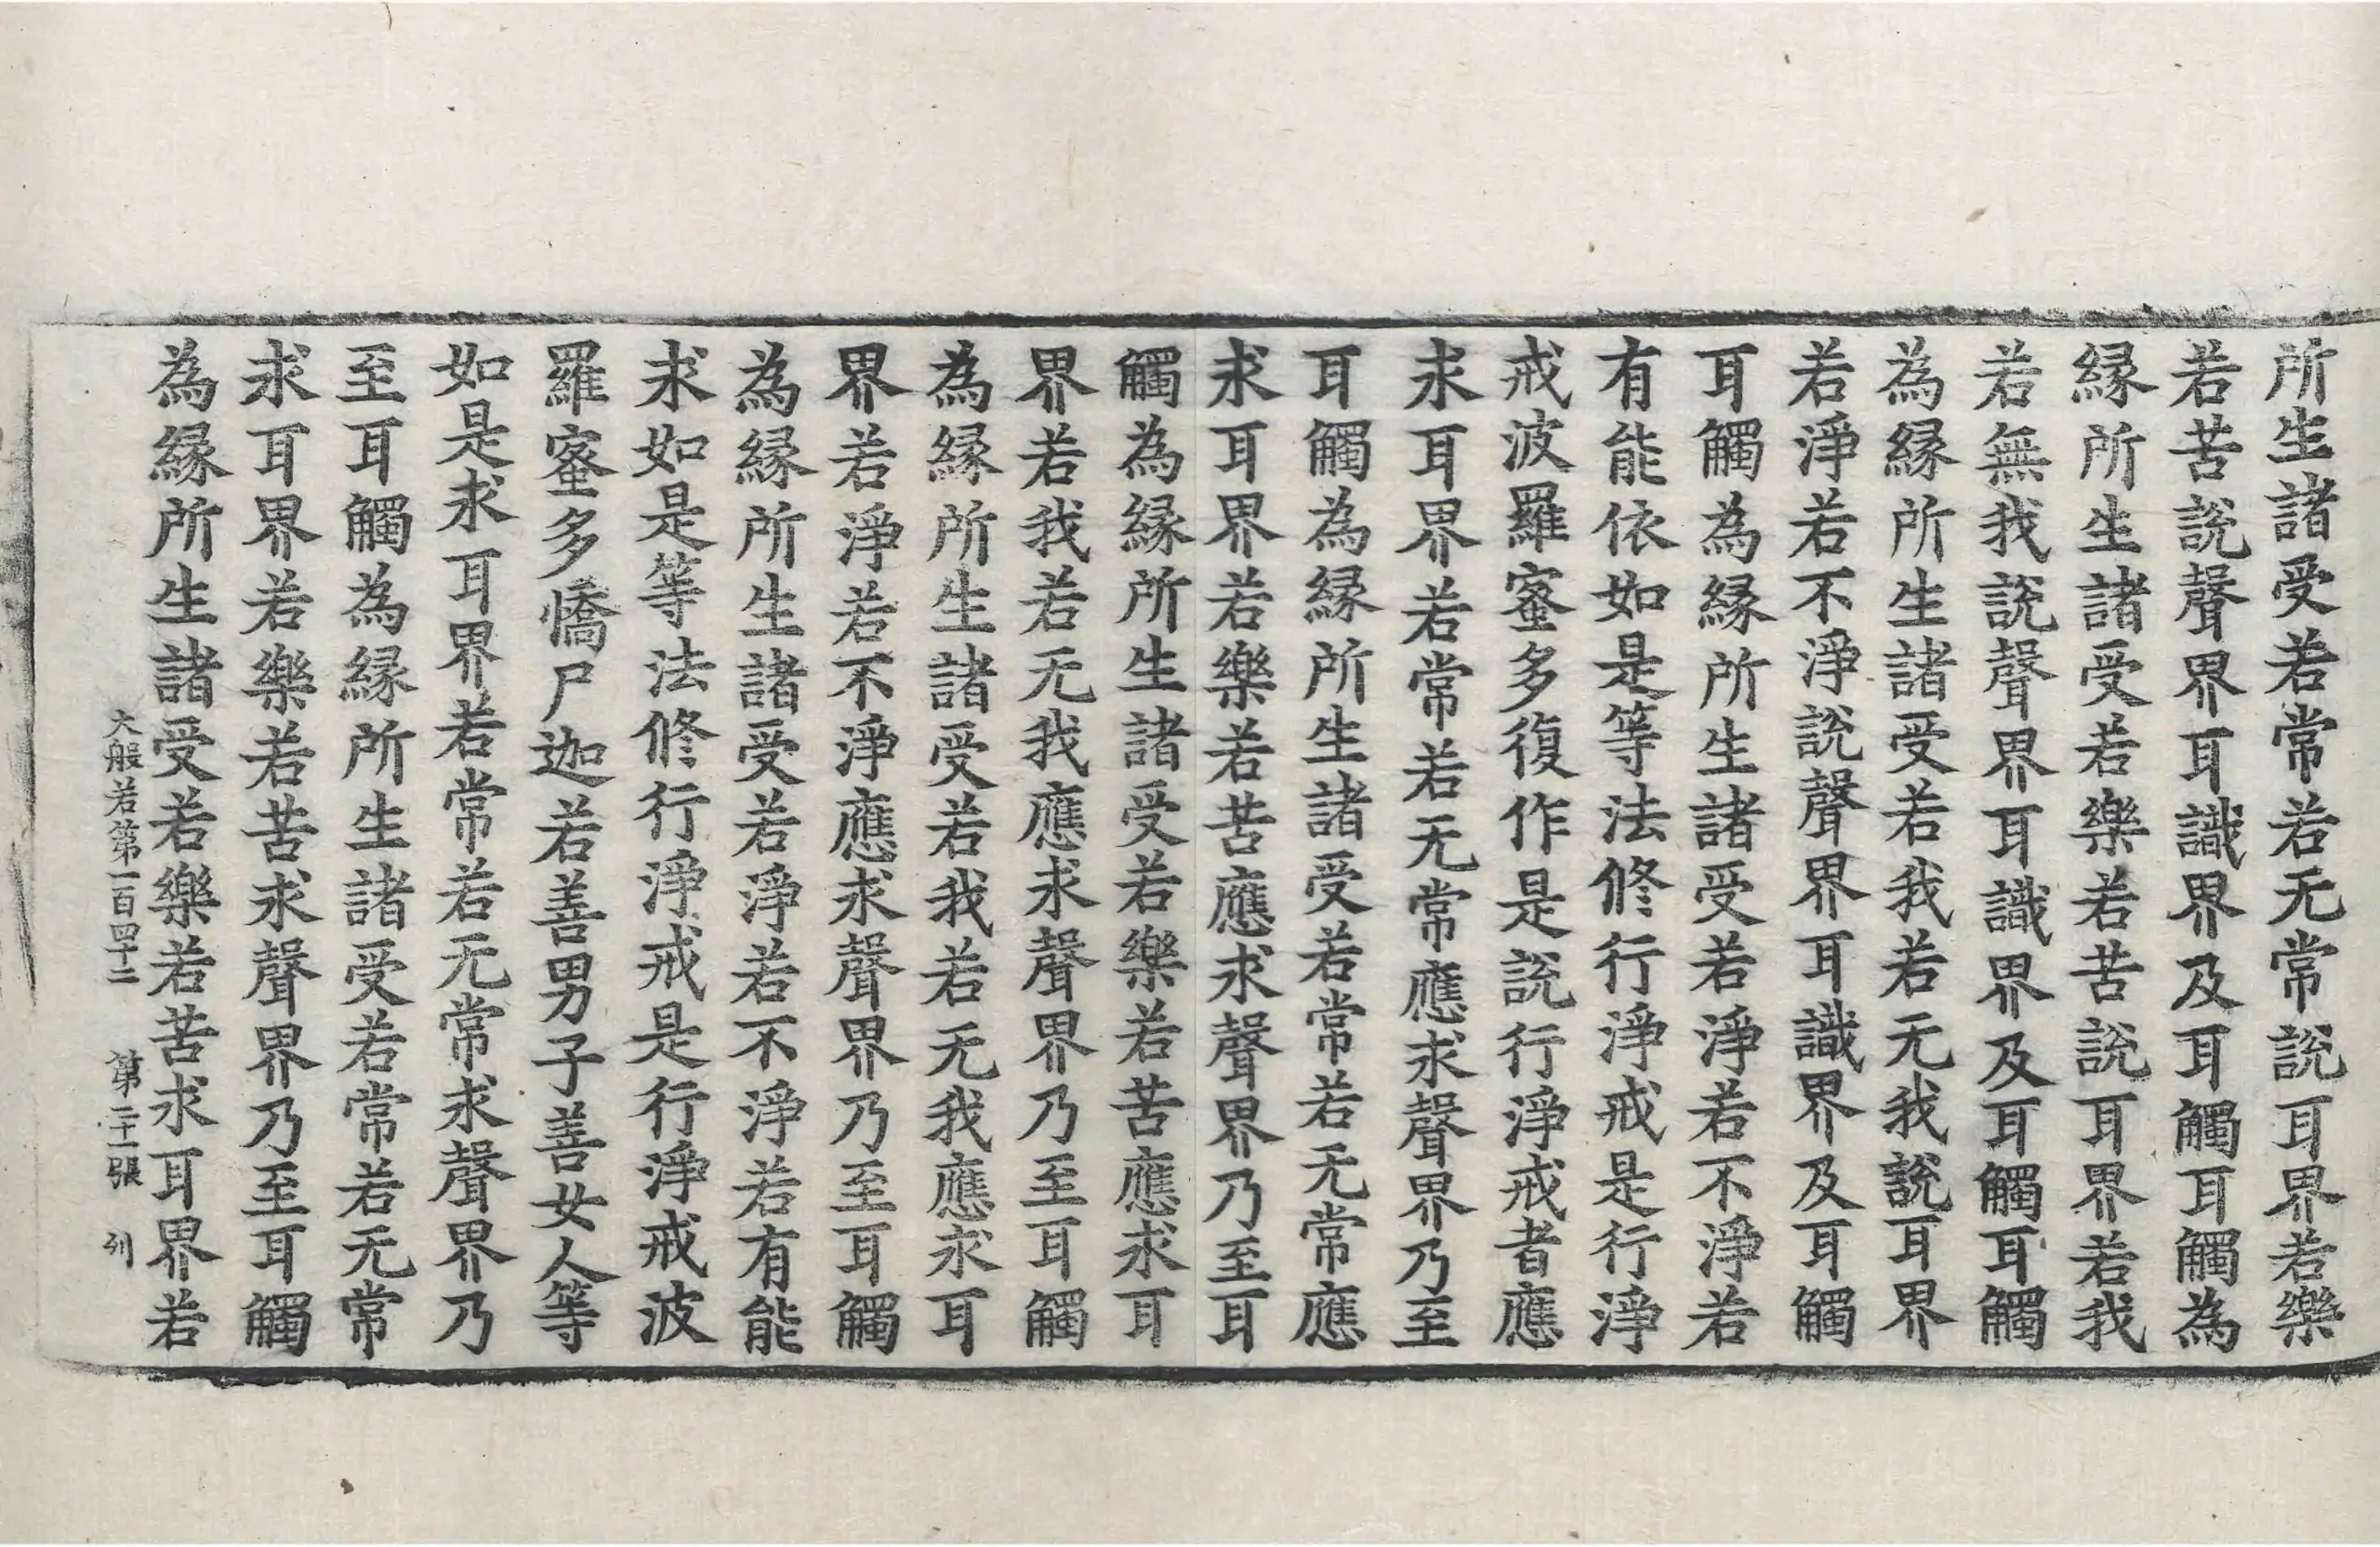 所生諸受若常若无常說耳界若樂
若苦說聲界耳識界及耳觸耳觸為
縁所生諸受若樂若苦說耳界若我
若無我說聲界耳識界及耳觸耳觸
為縁所生諸受若我若无我說耳界
若淨若不淨說聲界耳識界及耳觸
耳觸為縁所生諸受若淨若不淨若
有能依如是等法修行淨戒是行淨
戒波羅蜜多復作是說行淨戒者應
求耳界若常若无常應求聲界乃至
耳觸為縁所生諸受若常若无常應
求耳界若樂若苦應求聲界乃至耳
觸為縁所生諸受若樂若苦應求耳
界若我若无我應求聲界乃至耳觸
為縁所生諸受若我若无我應求耳
界若淨若不淨應求聲界乃至耳觸
為縁所生諸受若淨若不淨若有能
求如是等法修行淨戒是行淨戒波
羅蜜多憍尸迦若善男子善女人等
如是求耳界若常若无常求聲界乃
至耳觸為縁所生諸受若常若无常
求耳界若樂若苦求聲界乃至耳觸
為縁所生諸受若樂若苦求耳界若
大般若第一百四十二 第二十一張 列